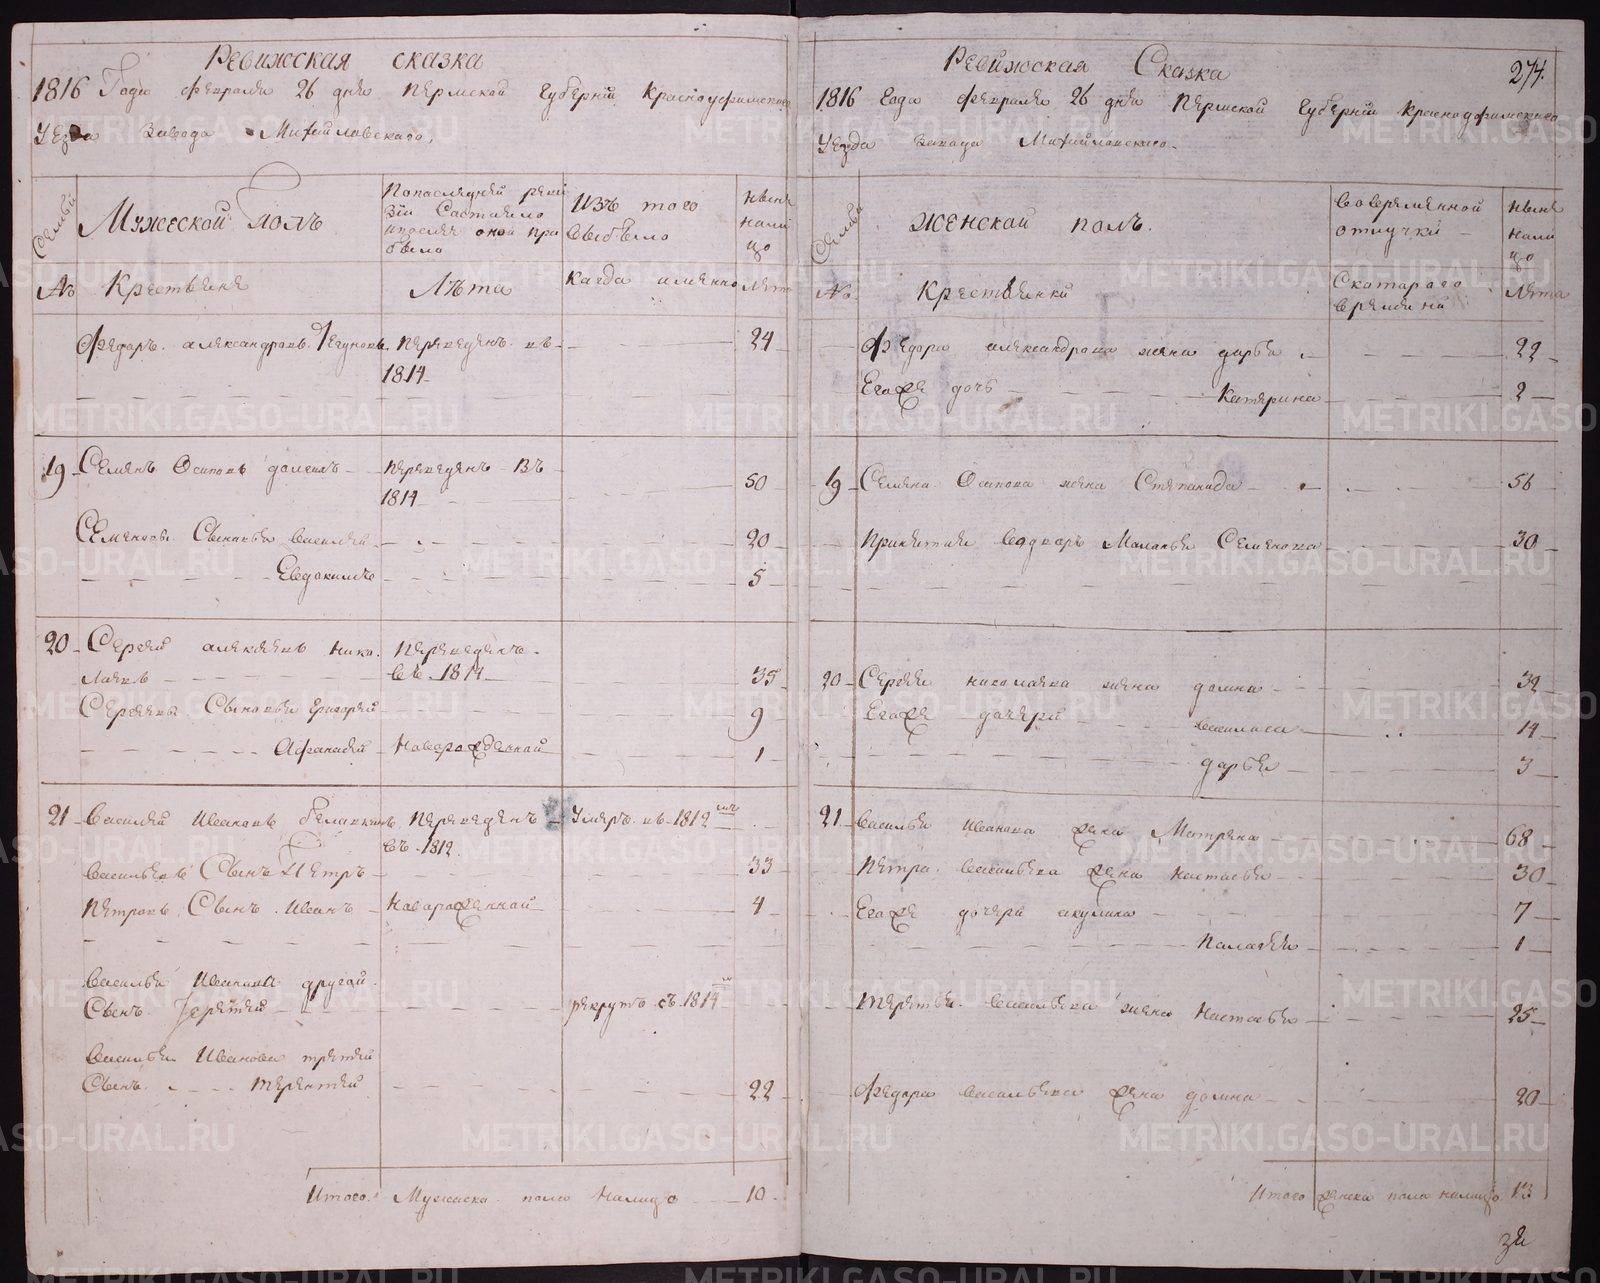 Ревижская сказка
1816 Года февраля 26 дня Пермской Губернiи Красноуфимскаго
Уезда Завода Михайловскаго.
Семьи
Мужеской Полъ
По последней реви
зiи Состояло
и после оной при
было
Изъ того
выбыло
ныне
нали
цо
№
Крестьяне
Лѣта
Когда именно
Лета
Федоръ александровъ переведенъ въ 24
1814
19 Семенъ Осиповъ переведенъ Въ
1814 50
Семеновы Сыновья василей 20
Евдокимъ 5
20 Сергей алексеевъ Нико Переведенъ
лаевъ въ 1814 35
Сергеевы Сыновья григорей 9
Афанасей Новорожденной 1
21 Василей Ивановъ Переведенъ Умеръ въ 1812мъ
въ 1812
Васильевъ Сынъ Петръ 33
Петровъ Сынъ Иванъ Новорожденной 4
Василья Иванова другой
Сынъ рекрутъ съ 1814
Василья Иванова третей
Сынъ Терентей 22
Итого Мужеска пола Налицо 10
Ревижская Сказка
274.
1816 Года февраля 26 дня Пермской Губернiи Красноуфимскаго
Уезда Завода Михайловскаго
Семьи
Женской полъ.
Во временной
отлучки
ныне
нали
цо
№
Крестьянки
Скотораго
времени
Лета
Федора александрова жена дарья 22
Егоже дочь Катерина 2
19 Семена Осипова жена Степанида 56
Маланья Семенова 30
20 Сергея николаева жена домна 32
Егоже дочери василиса 14
дарья 3
21 Василья Иванова жена Матрена 68
Петра Васильева жена настасья 30
Егоже дочери акулина 7
Палагея 1
Терентья Васильева жена Настасья 25
Федора Васильева жена домна 20
Итого женска пола налицо 13
METRIKI.GASO-URAL.RU